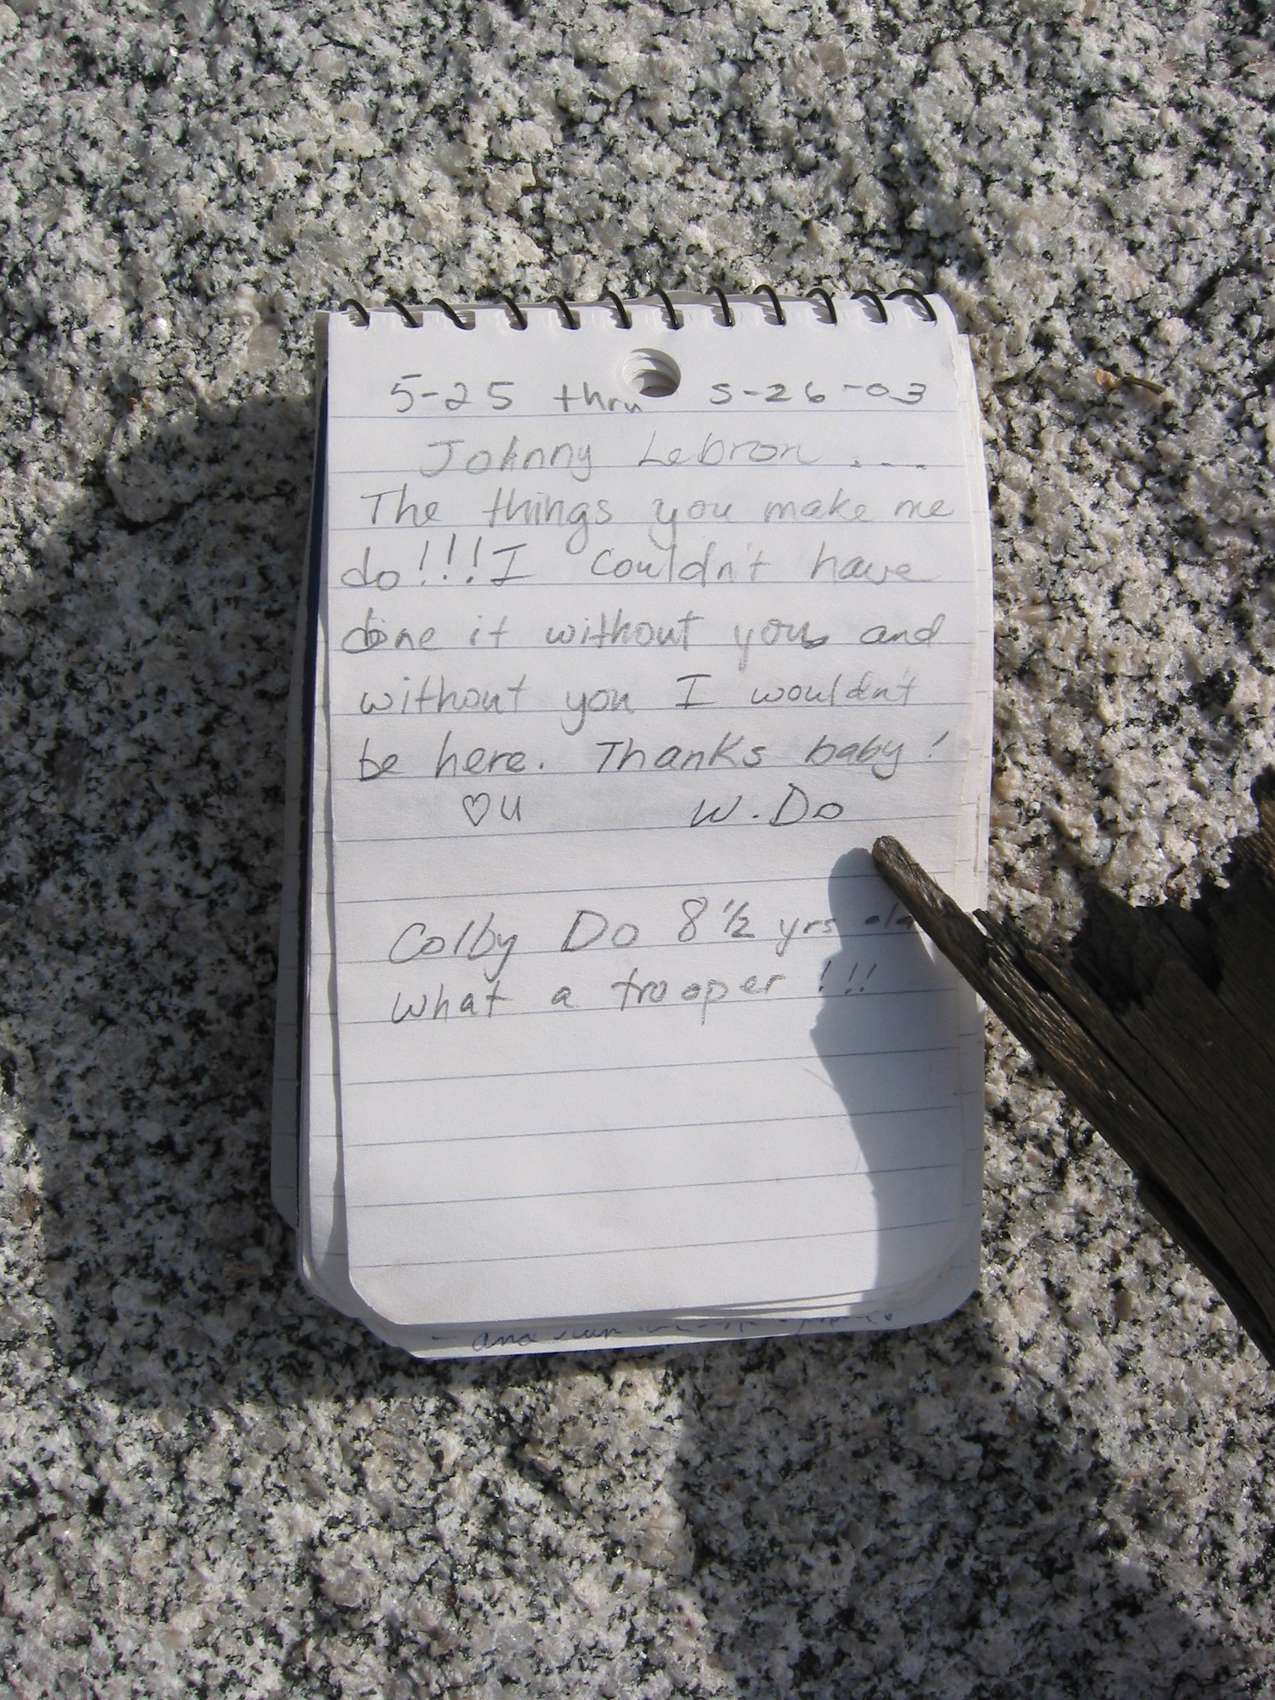 5-25 thru 5-26-03
Johnny Lebron ....
The things you make me
do!!! I couldn't have
done it without you and
without you I wouldn't
be here. Thanks baby!
♡u W.Do
Colby Do 8 1/2 yrs old
what a trooper!!!
and